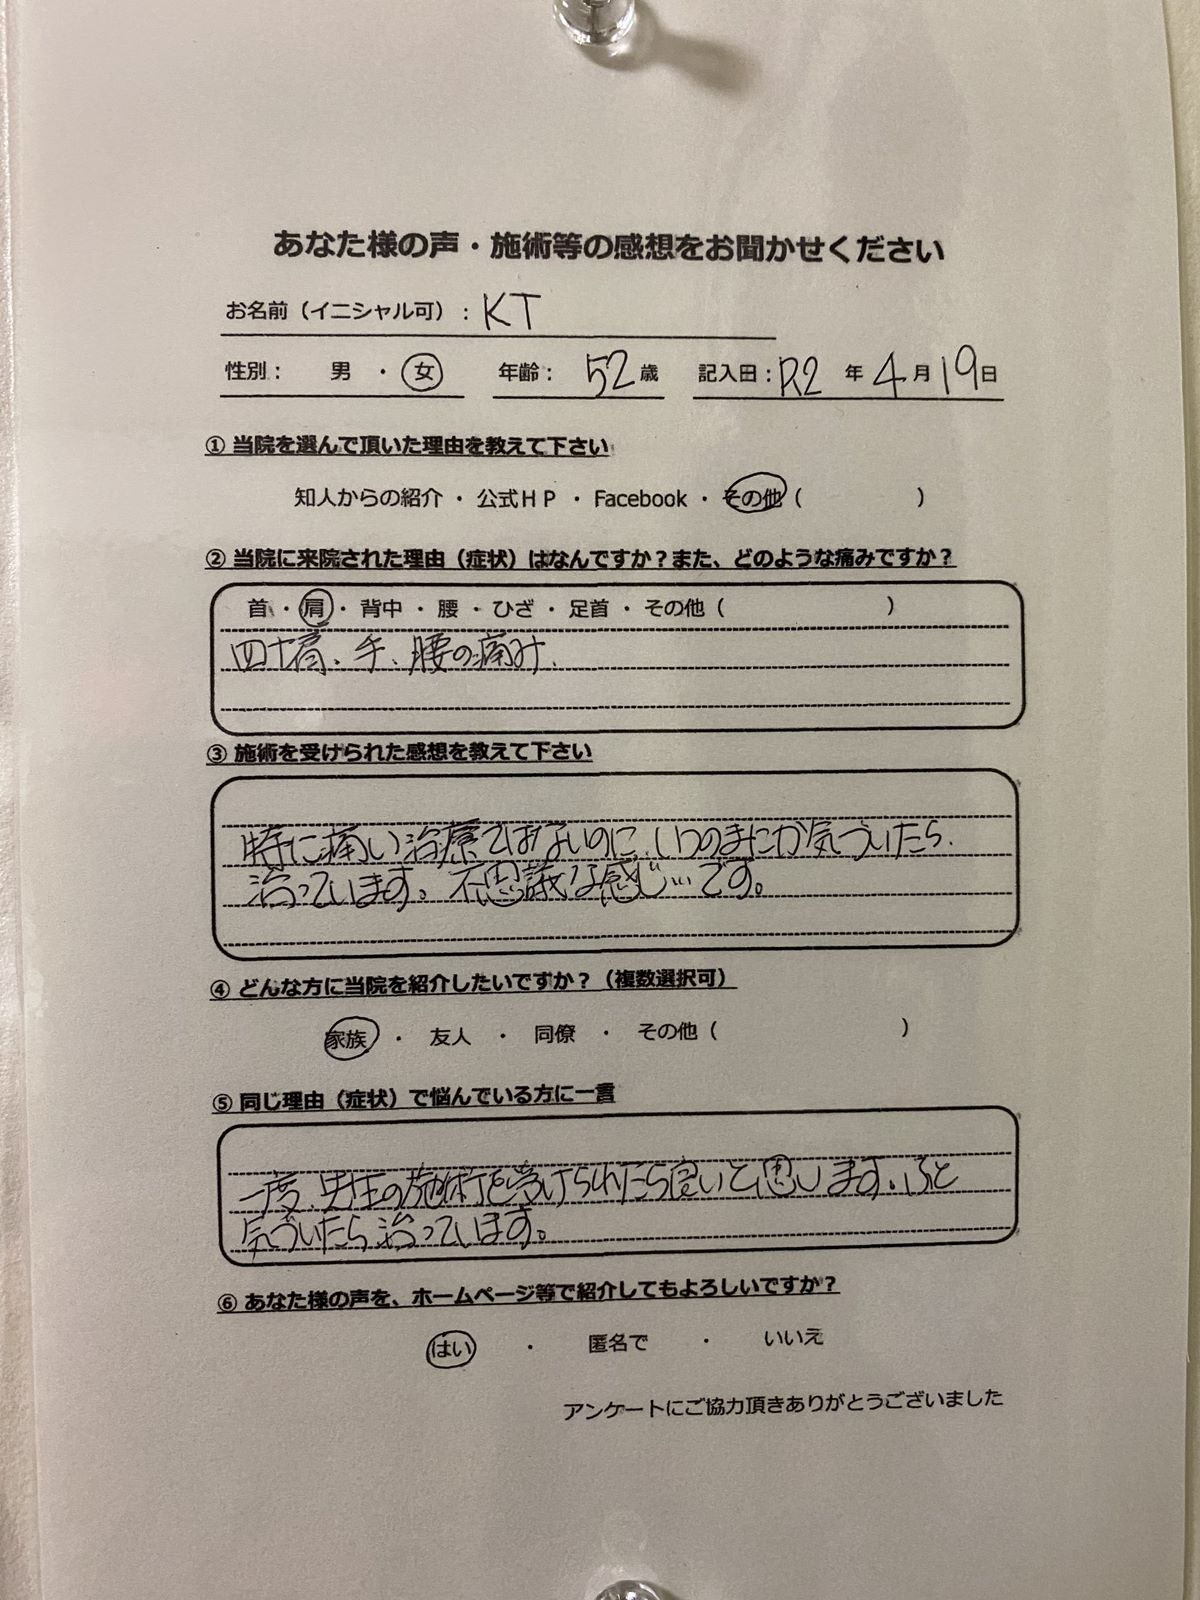 あなた様の声・施術等の感想をお聞かせください
お名前（イニシャル可）：KT
性別： 男 ・ 女 年齢： 52 歳 記入田：R2 年 4 月 19 日
① 当院を選んで頂いた理由を教えて下さい
知人からの紹介 ・ 公式HP ・ Facebook ・ その他（ ）
② 当院に来院された理由（症状）はなんですか？また、どのような痛みですか？
首 ・ 肩 ・ 背中 ・ 腰 ・ ひざ ・ 足首 ・ その他（ ）
四十肩、手、腰の痛み、
③ 施術を受けられた感想を教えて下さい
特に痛い治療ではないのに、いつのまにか気づいたら、
治っています。不思議な感じ…です。
④ どんな方に当院を紹介したいですか？（複数選択可）
家族 ・ 友人 ・ 同僚 ・ その他（ ）
⑤ 同じ理由（症状）で悩んでいる方に一言
一度、の施術を受けられたら良いと思います。ふと
気づいたら治っています。
⑥ あなた様の声を、ホームページ等で紹介してもよろしいですか？
はい ・ 匿名で ・ いいえ
アンケートにご協力頂きありがとうございました